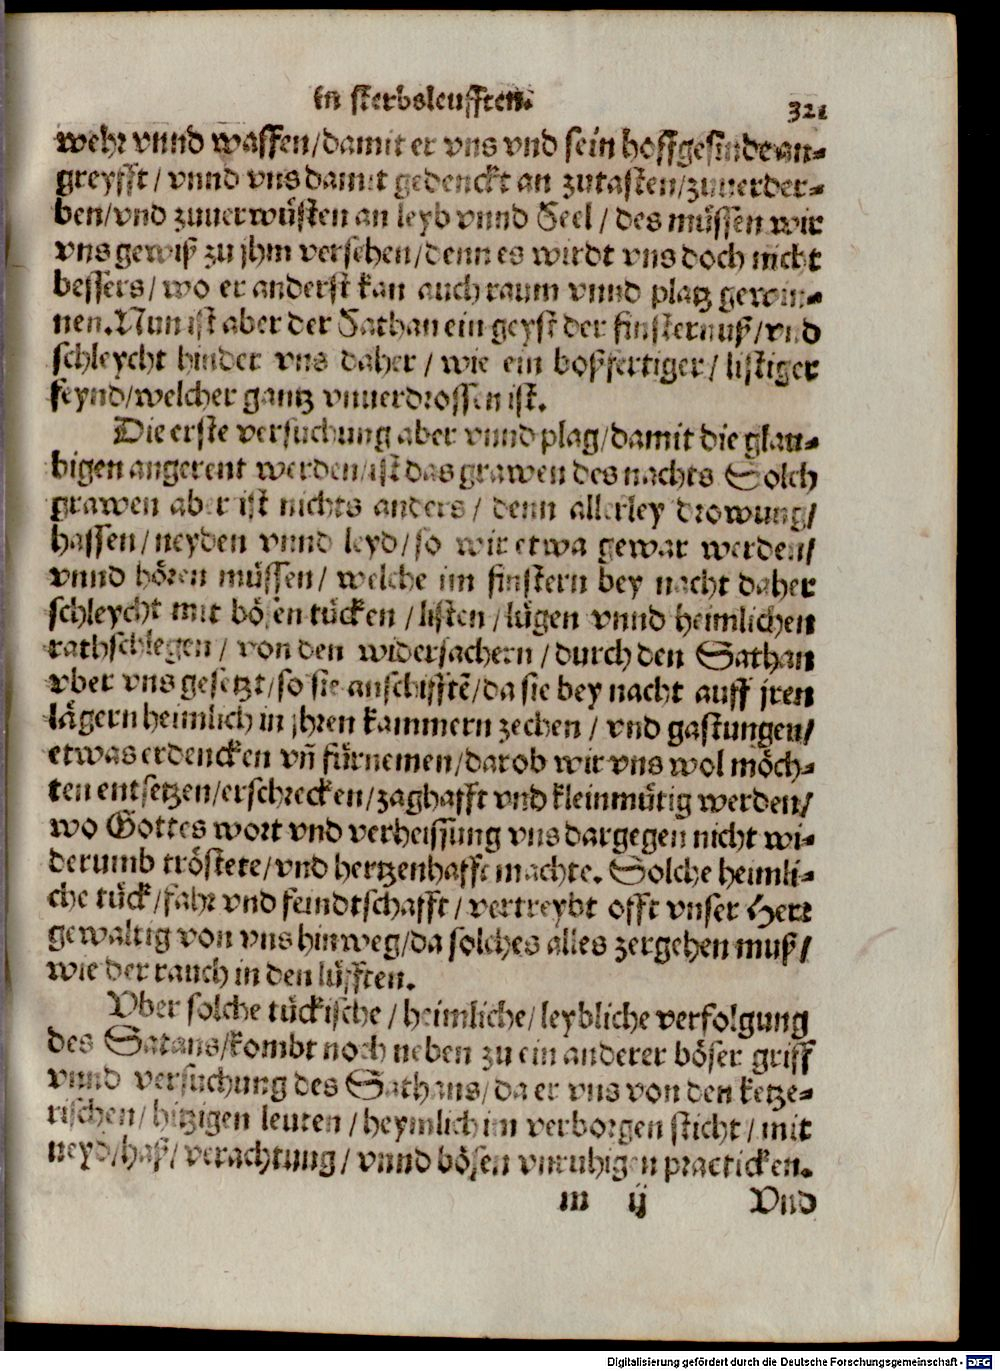 in sterbsleufften.
321
wehr vnnd waffen/damit er vns vnd sein hoffgesinde an-
greyfft/ vnnd vns damit gedenckt an zutasten/zuuerder-
ben/vnd zuuerwüsten an leyb vnnd Seel/ des müssen wir
vns gewiß zu jhm versehen/denn es wirdt vns doch nicht
bessers/ wo er anderst kan auch raum vnnd platz gewin-
nen. Nun ist aber der Sathan ein geyst der finsternuß/vnd
schleycht hinder vns daher/ wie ein boßfertiger/ listiger
feynd/welcher gantz vnuerdrossen ist.
Die erste versuchung aber vnnd plag/damit die glau-
bigen angerent werden/ist das grawen des nachts Solch
grawen aber ist nichts anders/ denn allerley drowung/
hassen/neyden vnnd leyd/so wir etwa gewar werden/
vnnd hören müssen/ welche im finstern bey nacht daher
schleycht mit bösen tücken/listen/lügen vnnd heimlichen
rathschlegen/ von den widersachern/durch den Sathan
vber vns gesetzt/so sie anschifftē/da sie bey nacht auff jren
lägern heimlich in jhren kammern zechen/ vnd gastungen/
etwas erdencken vñ fürnemen/darob wir vns wol möch-
ten entsetzen/erschrecken/zaghafft vnd kleinmütig werden/
wo Gottes wort vnd verheissung vns dargegen nicht wi-
derumb tröstete/vnd hertzenhafft machte. Solche heimli-
che tück/fahr vnd feindtschafft/vertreybt offt vnser Herr
gewaltig von vns hinweg/da solches alles zergehen muß/
wie der rauch in den lüfften.
Vber solche tückische/heimliche/leybliche verfolgung
des Satans/kombt noch neben zu ein anderer böser griff
vnnd versuchung des Sathans/da er vns von den ketze-
rischen/hitzigen leuten/heymlich im verborgen sticht/mit
neyd/haß/verachtung/vnnd bösen vnruhigen practicken.
m ij Vnd
Digitalisierung gefördert durch die Deutsche Forschungsgemeinschaft - DFG